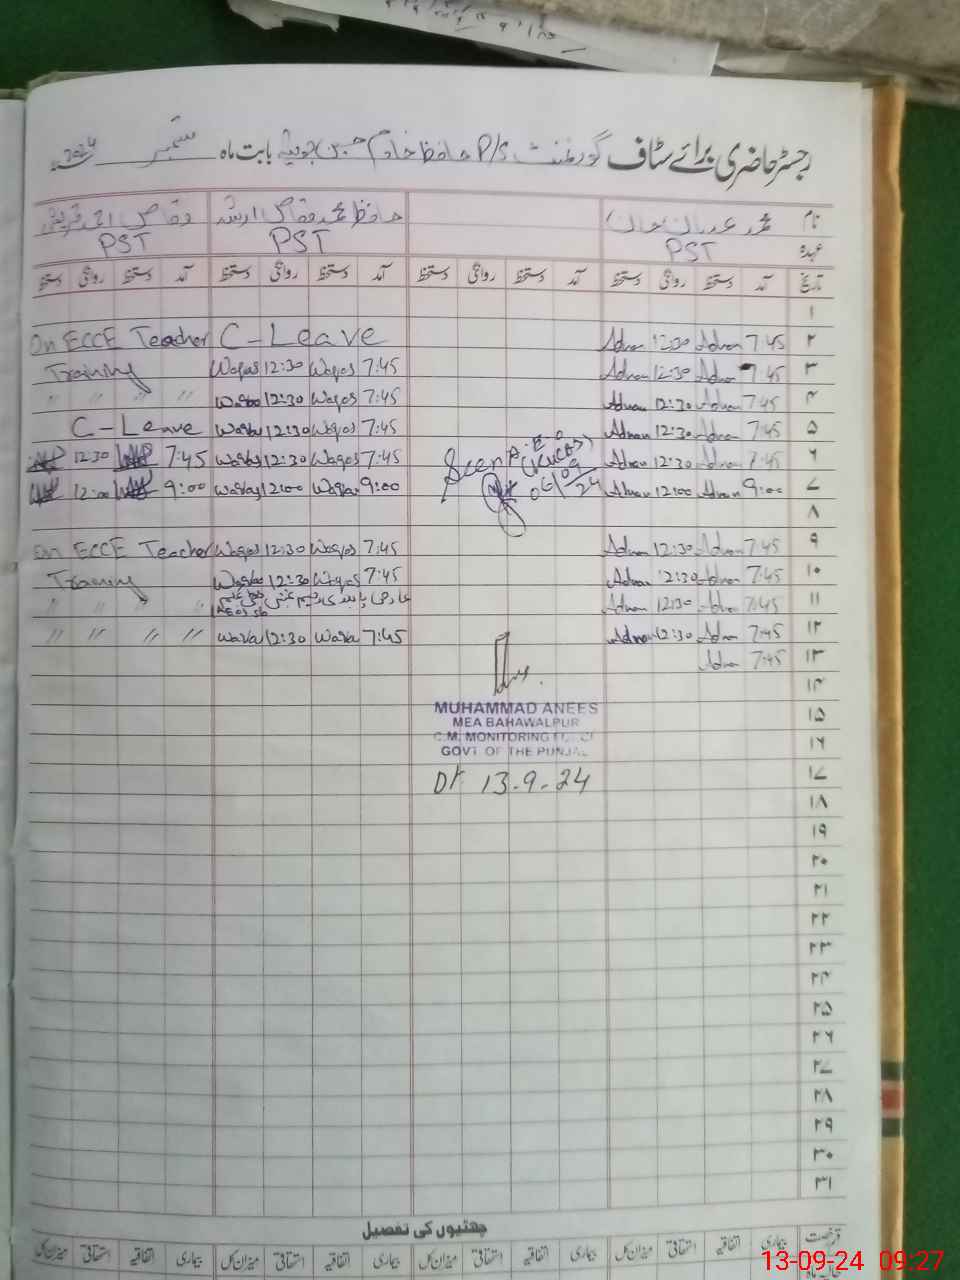 رجسٹر حاضری برائے سٹاف گورنمنٹ P/S حافظ خادم حسین جوئیہ بابت ماہ ستمبر 2024ء
نام محمد عدنان خان حافظ محمد وقاص ارشد وقاص احمد قریشی
عہدہ PST PST PST
تاریخ آمد دستخط روانگی دستخط آمد دستخط روانگی دستخط آمد دستخط روانگی دستخط آمد دستخط روانگی دستخط
۱
۲ 7:45 Adnan 12:30 Adnan C-Leave On ECCE Teacher
۳ 7:45 Adnan 12:30 Adnan 7:45 Waqas 12:30 Waqas Training
۴ 7:45 Adnan 12:30 Adnan 7:45 Waqas 12:30 Waqas " " " "
۵ 7:45 Adnan 12:30 Adnan 7:45 Waqas 12:30 Waqas C-Leave
۶ 7:45 Adnan 12:30 Adnan 7:45 Waqas 12:30 Waqas 7:45 12:30
۷ 9:00 Adnan 12:00 Adnan 9:00 Waqas 12:00 Waqas 9:00 12:00
Seen
06/09/24
۸
۹ 7:45 Adnan 12:30 Adnan 7:45 Waqas 12:30 Waqas On ECCE Teacher
۱۰ 7:45 Adnan 12:30 Adnan 7:45 Waqas 12:30 Waqas Training
۱۱ 7:45 Adnan 12:30 Adnan " " " "
۱۲ 7:45 Adnan 12:30 Adnan 7:45 Waqas 12:30 Waqas " " " "
۱۳ 7:45 Adnan
۱۴
MUHAMMAD ANEES
MEA BAHAWALPUR
C.M. MONITORING
GOVT OF THE PUNJAB
Dt 13-9-24
۱۵
۱۶
۱۷
۱۸
۱۹
۲۰
۲۱
۲۲
۲۳
۲۴
۲۵
۲۶
۲۷
۲۸
۲۹
۳۰
۳۱
چھٹیوں کی تفصیل
قسم رخصت بیماری اتفاقیہ استحقاقی میزان کل بیماری اتفاقیہ استحقاقی میزان کل بیماری اتفاقیہ استحقاقی میزان کل بیماری اتفاقیہ استحقاقی میزان کل
13-09-24 09:27